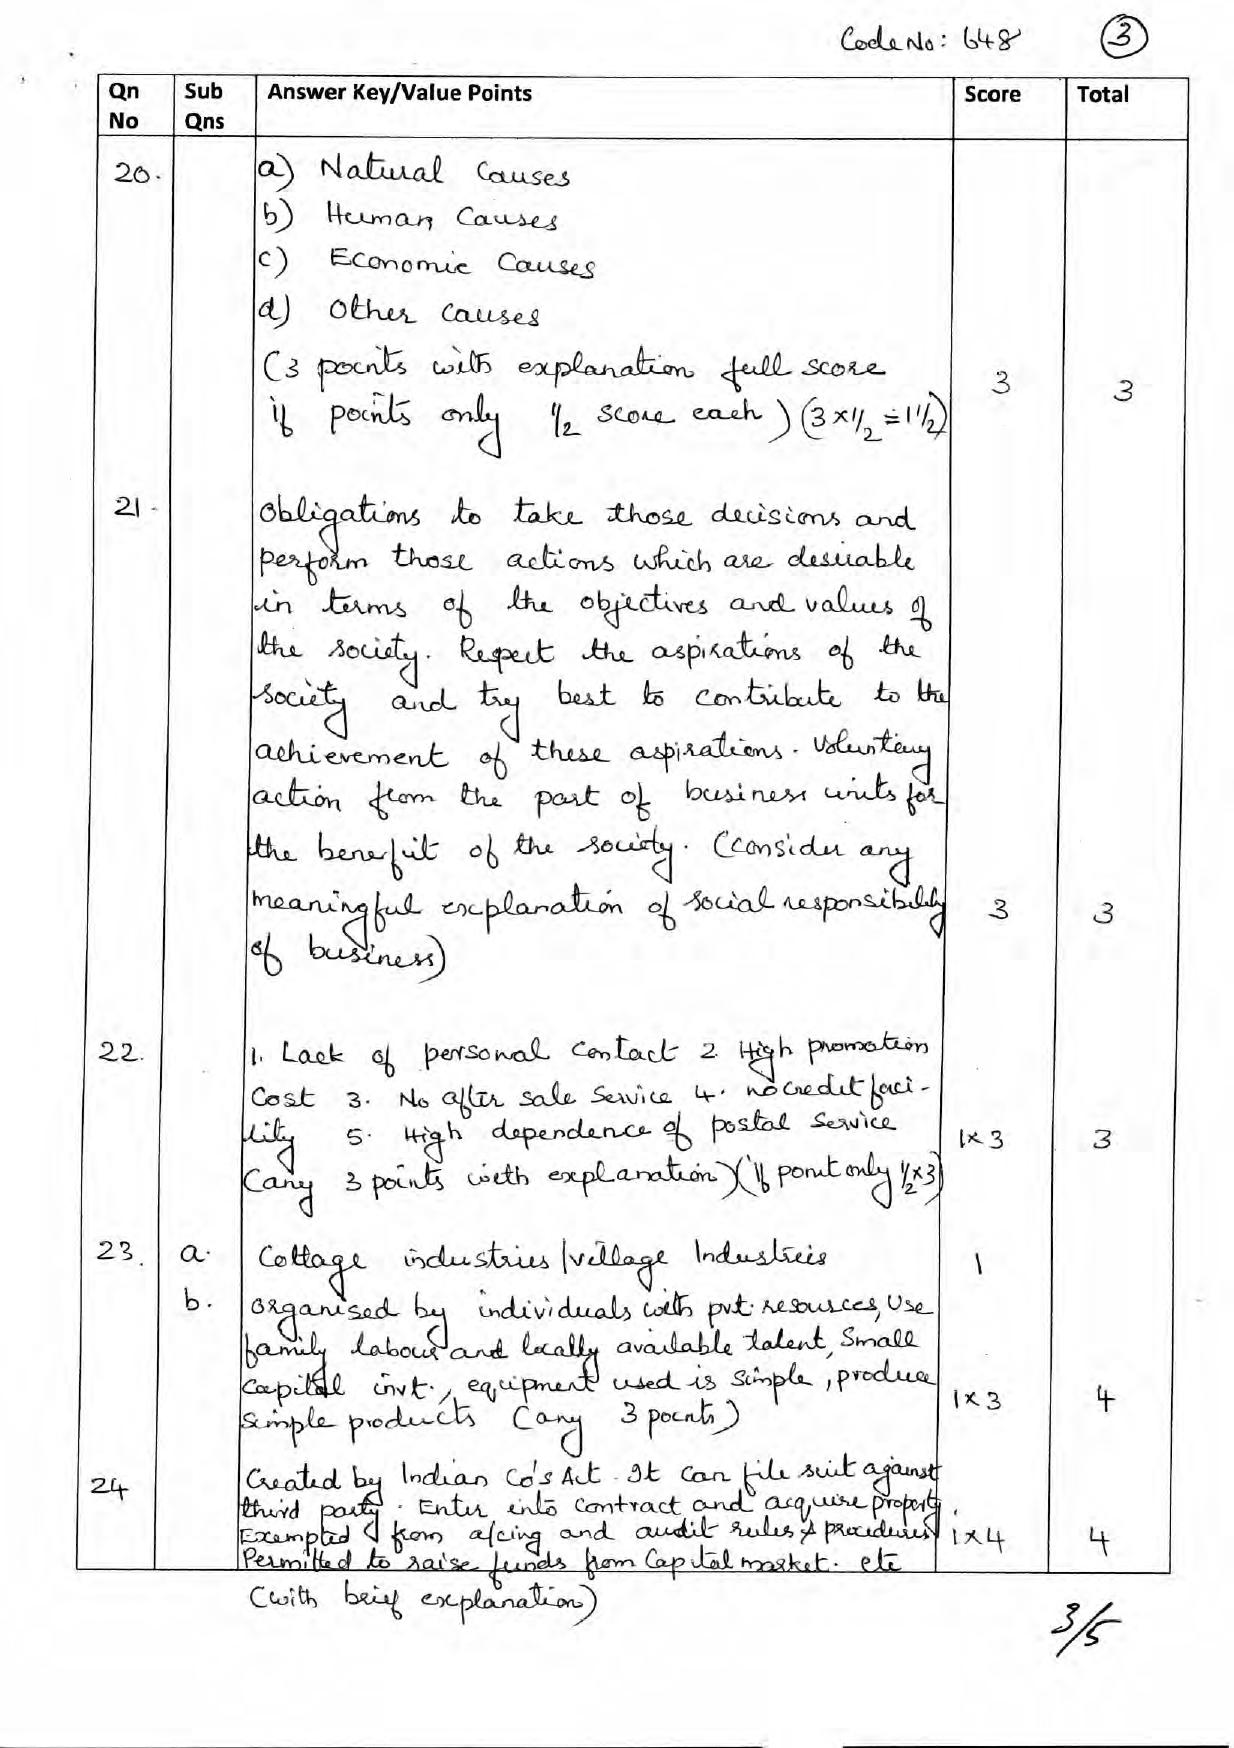 Code No: 648 3
Qn No Sub Qns Answer Key/Value Points Score Total
20. a) Natural Causes
b) Human Causes
c) Economic Causes
d) Other causes
(3 points with explanation full score 3 3
if points only 1/2 score each) (3 x 1/2 = 1 1/2)
21. Obligations to take those decisions and
perform those actions which are desirable
in terms of the objectives and values of
the society. Respect the aspirations of the
society and try best to contribute to the
achievement of these aspirations. Voluntary
action from the part of business units for
the benefit of the society. (Consider any
meaningful explanation of social responsibility 3 3
of business)
22. 1. Lack of personal Contact 2. High promotion
Cost 3. No after sale Service 4. no credit faci-
lity 5. High dependence of postal Service 1x3 3
(any 3 points with explanation) (if point only 1/2 x 3)
23. a. Cottage industries/village Industries 1
b. organised by individuals with pvt. resources, Use
family labour and locally available talent, Small
Capital invt., equipment used is simple, produce 1x3 4
simple products (any 3 points)
24 Created by Indian Co's Act. It can file suit against
third party. Enter into contract and acquire property.
Exempted from a/cing and audit rules & procedures 1x4 4
Permitted to raise funds from Capital market. etc
(with brief explanation)
3/5